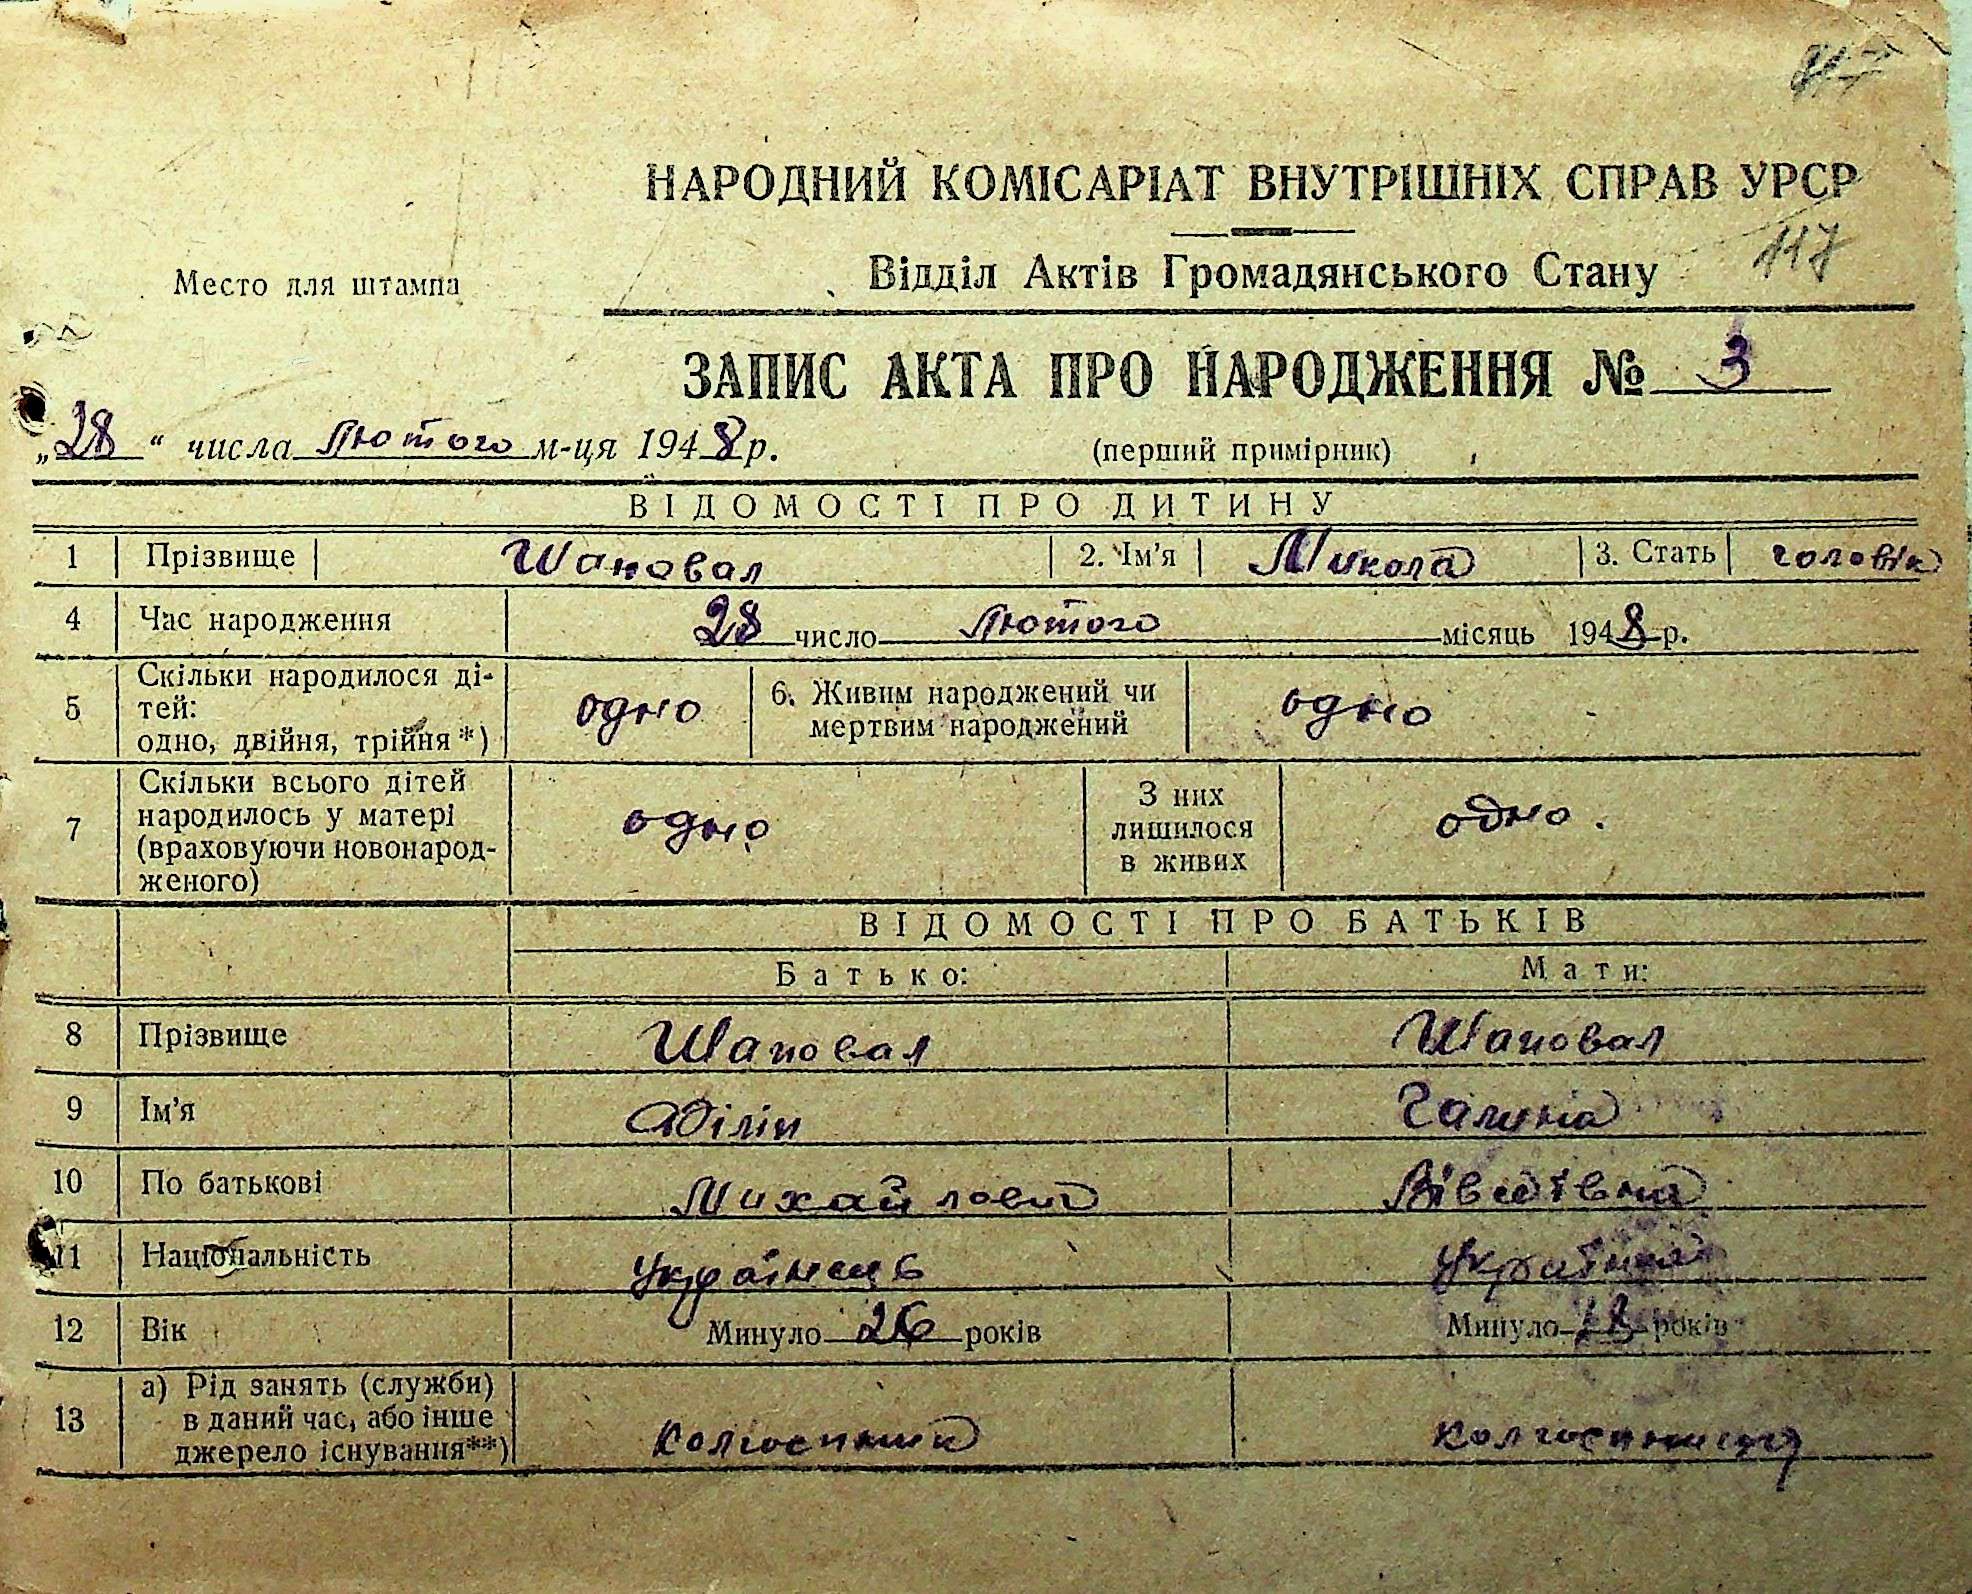 НАРОДНИЙ КОМІСАРІАТ ВНУТРІШНІХ СПРАВ УРСР
117
Место для штампа
Відділ Актів Громадянського Стану
ЗАПИС АКТА ПРО НАРОДЖЕННЯ № 3
„28“ числа Лютого м-ця 1948 р.
(перший примірник)
ВІДОМОСТІ ПРО ДИТИНУ
1 Прізвище Шаповал 2. Ім'я Микола 3. Стать чоловік
4 Час народження 28 число Лютого місяць 1948 р.
5 Скільки народилося ді-
тей:
одно, двійня, трійня*) одно
6. Живим народжений чи
мертвим народжений одно
7 Скільки всього дітей
народилось у матері
(враховуючи новонарод-
женого) одно
З них
лишилося
в живих одно.
ВІДОМОСТІ ПРО БАТЬКІВ
Батько: Мати:
8 Прізвище Шаповал Шаповал
9 Ім'я Філіп Галина
10 По батькові Михайлович
11 Національність Українець Українка
12 Вік Минуло 26 років Минуло років
13 а) Рід занять (служби)
в даний час, або інше
джерело існування**) колгоспник колгоспниця